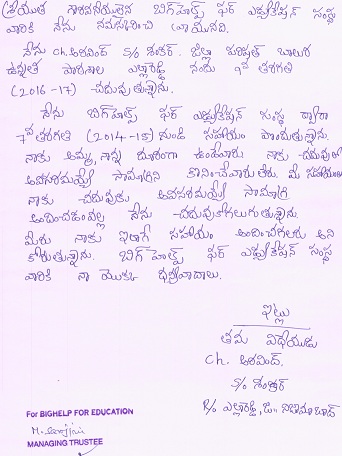 శ్రీయుత గౌరవనీయులైన బిగ్‌హెల్ప్ ఫర్ ఎడ్యుకేషన్ సంస్థ
వారికి నేను నమస్కరించి వ్రాయునది.
నేను Ch. అరవింద్ S/o శంకర్. జిల్లా పరిషత్ బాలుర
ఉన్నత పాఠశాల ఎల్లారెడ్డి నందు 9వ తరగతి
(2016-17) చదువుతున్నాను.
నేను బిగ్‌హెల్ప్ ఫర్ ఎడ్యుకేషన్ సంస్థ ద్వారా
7వ తరగతి (2014-15) నుండి సహాయం పొందుతున్నాను.
నాకు అమ్మ, నాన్న దూరంగా ఉండేవారు నాకు చదువుకో
అవసరమయ్యే సామాగ్రిని కొనించేవారు లేరు. మీ సహాయం
నాకు చదువుకు అవసరమయ్యే సామాగ్రి
అందించడంవల్ల నేను చదువుకోగలుగుతున్నాను.
మీరు నాకు ఇలాగే సహాయం అందించగలరు అని
కోరుతున్నాను. బిగ్‌హెల్ప్ ఫర్ ఎడ్యుకేషన్ సంస్థ
వారికి నా యొక్క ధన్యవాదాలు.
ఇట్లు
తమ విధేయుడు
Ch. అరవింద్.
S/o శంకర్
R/o ఎల్లారెడ్డి, జి|| నిజామాబాద్
For BIGHELP FOR EDUCATION
MANAGING TRUSTEE